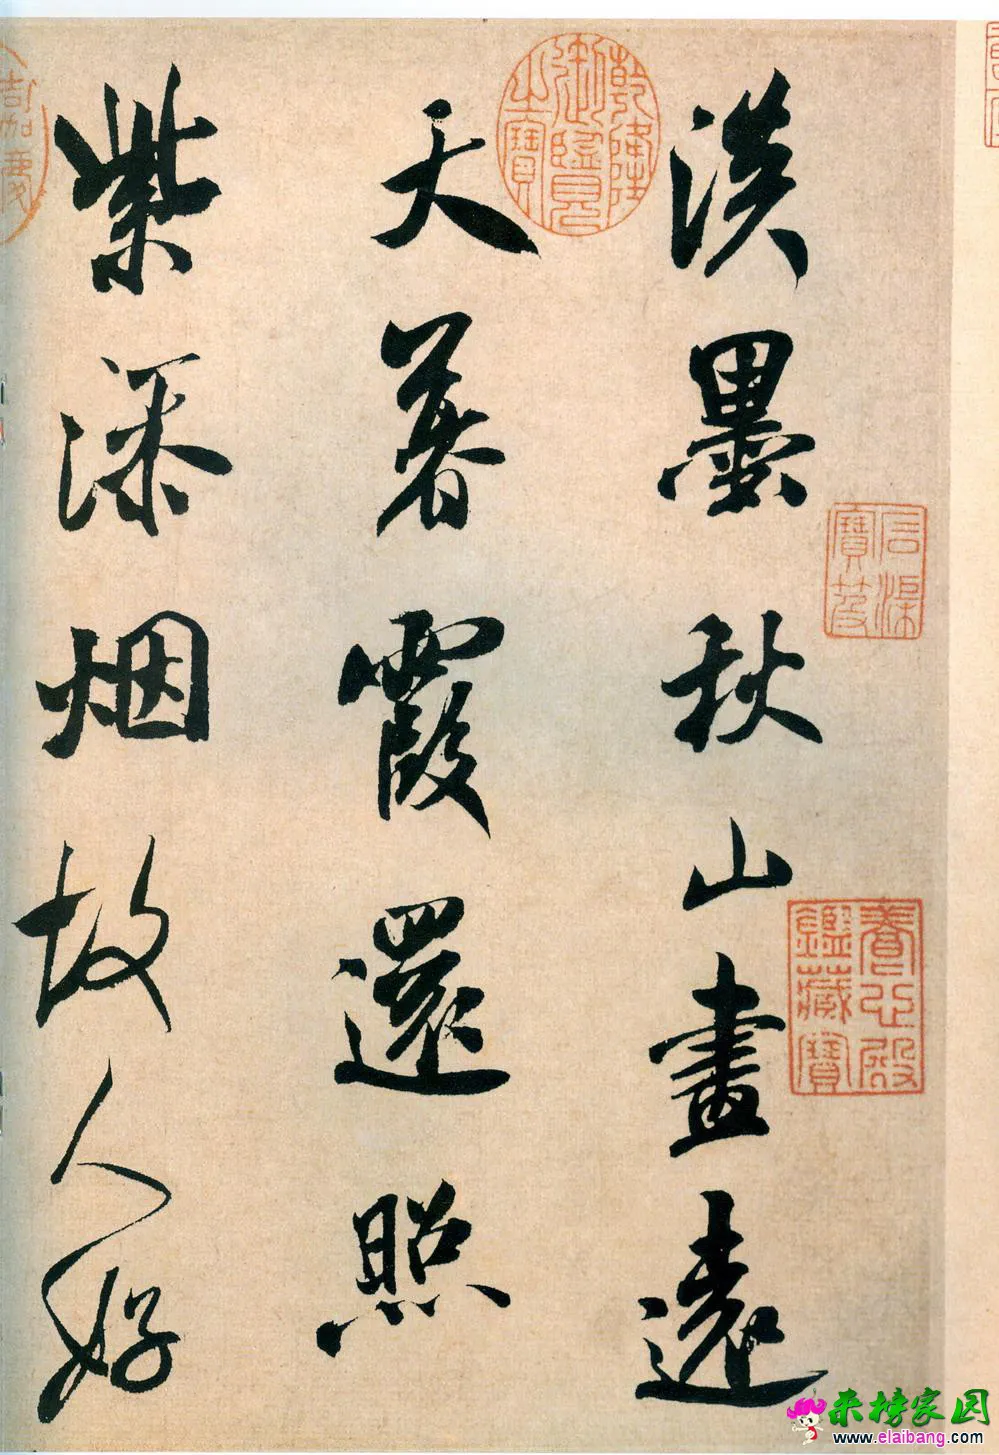 淡墨秋山畫遠
天暮霞還照
紫添烟故人好
乾隆
御覽
之寶
石渠
寶笈
養心殿
鑑藏寶
嘉慶
来榜家园
www.elaibang.com